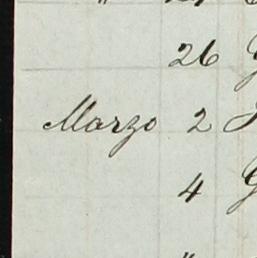 26
Marzo 2
4
"